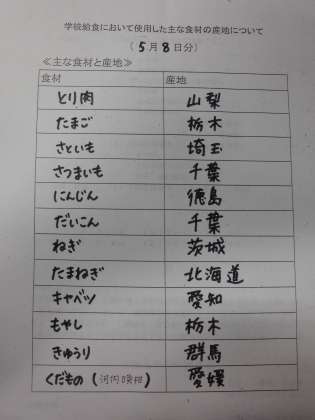 学校給食において使用した主な食材の産地について
（ 5月 8日分）
≪主な食材と産地≫
食材 産地
とり肉 山梨
たまご 栃木
さといも 埼玉
さつまいも 千葉
にんじん 徳島
だいこん 千葉
ねぎ 茨城
たまねぎ 北海道
キャベツ 愛知
もやし 栃木
きゅうり 群馬
くだもの（河内晩柑） 愛媛